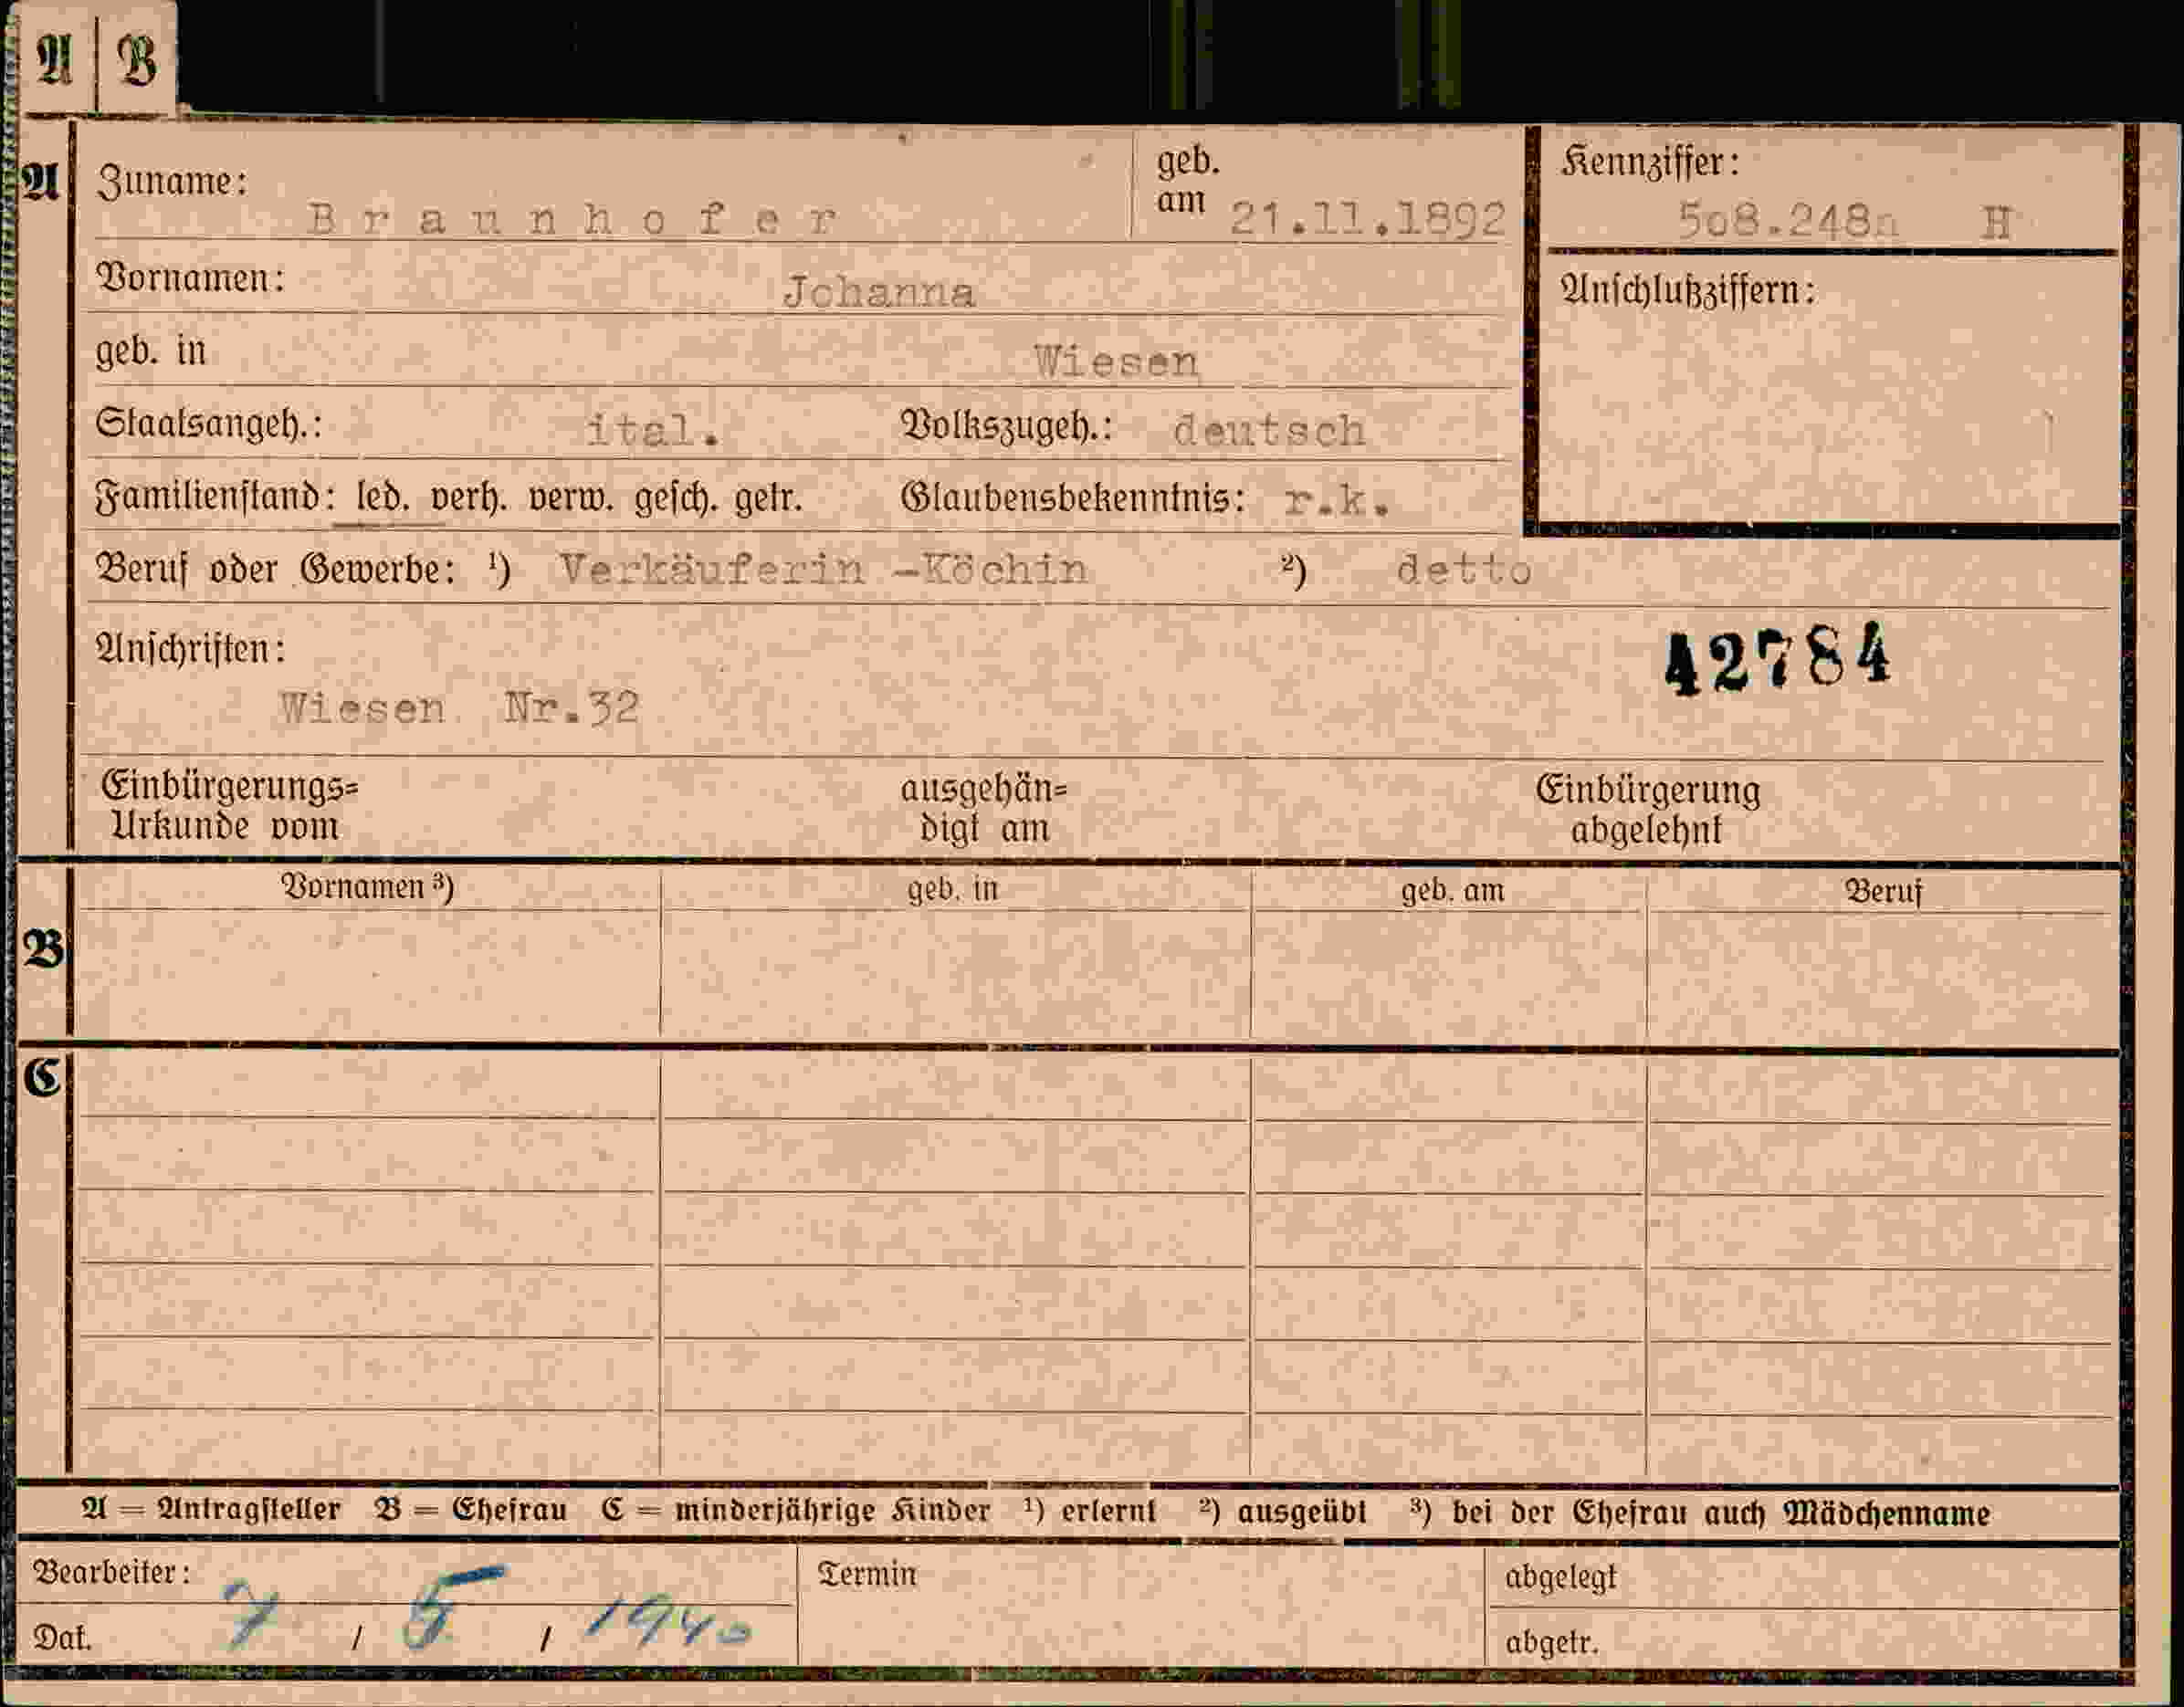 A B
A Zuname: Braunhofer geb. am 21.11.1892 Kennziffer: 508.248a H
Vornamen: Johanna Anschlußziffern:
geb. in Wiesen
Staatsangeh.: ital. Volkszugeh.: deutsch
Familienstand: led. verh. verw. gesch. getr. Glaubensbekenntnis: r.k.
Beruf oder Gewerbe: ¹) Verkäuferin -Köchin ²) detto
Anschriften: 42784
Wiesen Nr.32
Einbürgerungs= ausgehän= Einbürgerung
Urkunde vom digt am abgelehnt
Vornamen ³) geb. in geb. am Beruf
B
C
A = Antragsteller B = Ehefrau C = minderjährige Kinder ¹) erlernt ²) ausgeübt ³) bei der Ehefrau auch Mädchenname
Bearbeiter: Termin abgelegt
Dat. 7 / 5 / 1940 abgetr.